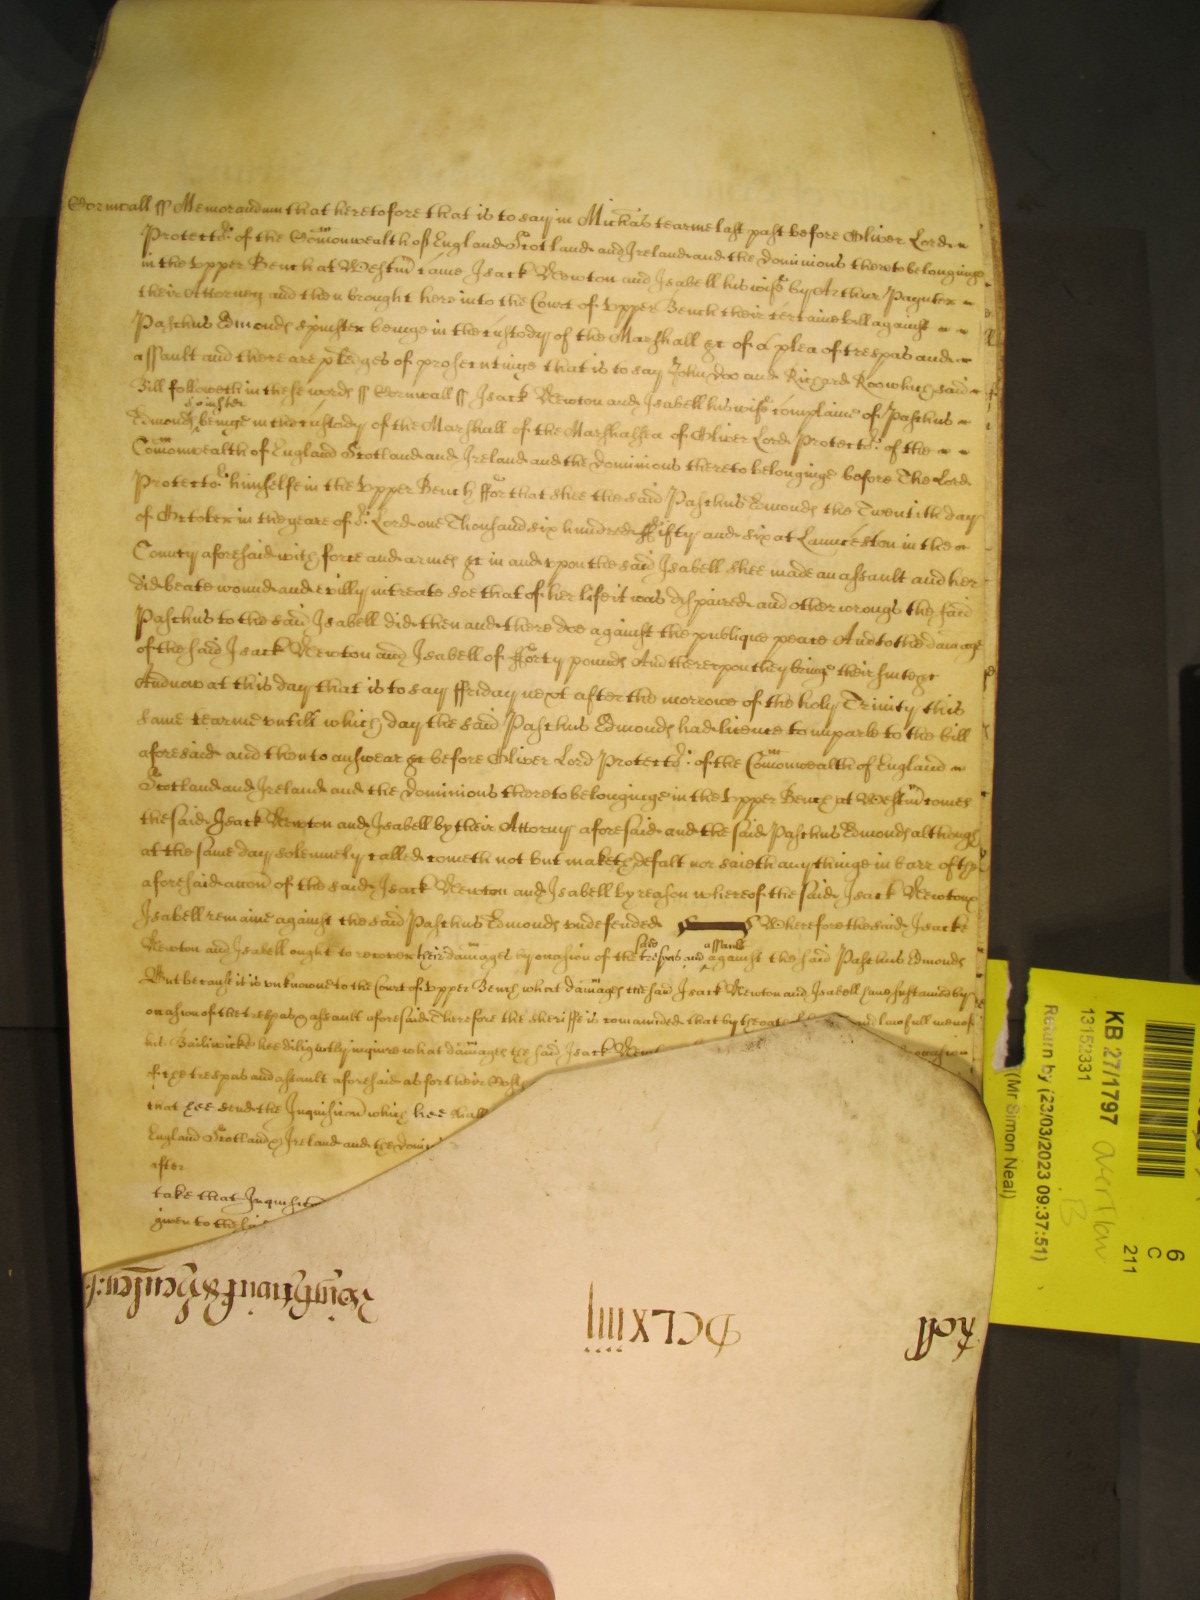 Cornwall ss Memorandum that heretofore that is to say in Mich'as tearme last past before Oliver Lord
Protecto:r of the Com̄onwealth of England Scotland and Ireland and the dominions thereto belonginge
in the Upper Bench at Westm̄ came Isack Newton and Isabell his wife by Arthur Paynter
their Attorney and then brought here into the Court of Upper Bench their certaine bill against
Paschus Edmonds spinster beinge in the custody of the Marshall &c of a plea of trespas and
assault and there are pledges of prosecutinge that is to say John Doo and Richard Roo which said
Bill followeth in these words ss Cornwall ss Isack Newton and Isabell his wife complaine of Paschus
Edmonds spinster beinge in the custody of the Marshall of the Marshalsea of Oliver Lord Protecto:r of the
Com̄onwealth of England Scotland and Ireland and the dominions thereto belonginge before The Lord
Protecto:r himselfe in the Upper Bench ffor that shee the said Paschus Edmonds the Twentith day
of October in the yeare of o:r Lord one Thousand six hundred ffifty and six at Launceston in the
County aforesaid with force and armes &c in and upon the said Isabell shee made an assault and her
did beate wound and evilly intreate soe that of her life it was dispaired and other wrongs the said
Paschus to the said Isabell did then and there doe against the publique peace And to the damage
of the said Isack Newton and Isabell of fforty pounds And thereupon they bringe their suite &c
And now at this day that is to say ffriday next after the morrowe of the holy Trinity this
same tearme untill which day the said Paschus Edmonds had licence to imparle to the bill
aforesaid and then to answear &c before Oliver Lord Protecto:r of the Com̄onwealth of England
Scotland and Ireland and the dominions thereto belonginge in the Upper Bench at Westm̄ comes
the said Isack Newton and Isabell by their Attorny aforesaid and the said Paschus Edmonds although
at the same day solemnely called cometh not but maketh defalt nor saieth any thinge in barr of the
aforesaid accon̄ of the said Isack Newton and Isabell by reason whereof the said Isack Newton &
Isabell remaine against the said Paschus Edmonds undefended Wherefore the said Isack
Newton and Isabell ought to recover their dam̄ages by occasion of the said trespas and assault against the said Paschus Edmonds
But because it is unknowne to the Court of Upper Bench what dam̄ages the said Isack Newton and Isabell have sustained by
occasion of the trespas & assault aforesaid Therefore the sheriffe is com̄anded that by the oath and lawfull men of
his Bailiwicke hee diligently inquire what dam̄ages the said Isack occasion
of the trespas and assault aforesaid as for their
that hee send the Inquisicon̄ which hee shall
England Scotland & Ireland and the
after
take that
given to the said
Roll
DCLXIIII
KB 27/1797
13152331
Return by (23/03/2023 09:37:51)
(Mr Simon Neal)
6
C
211